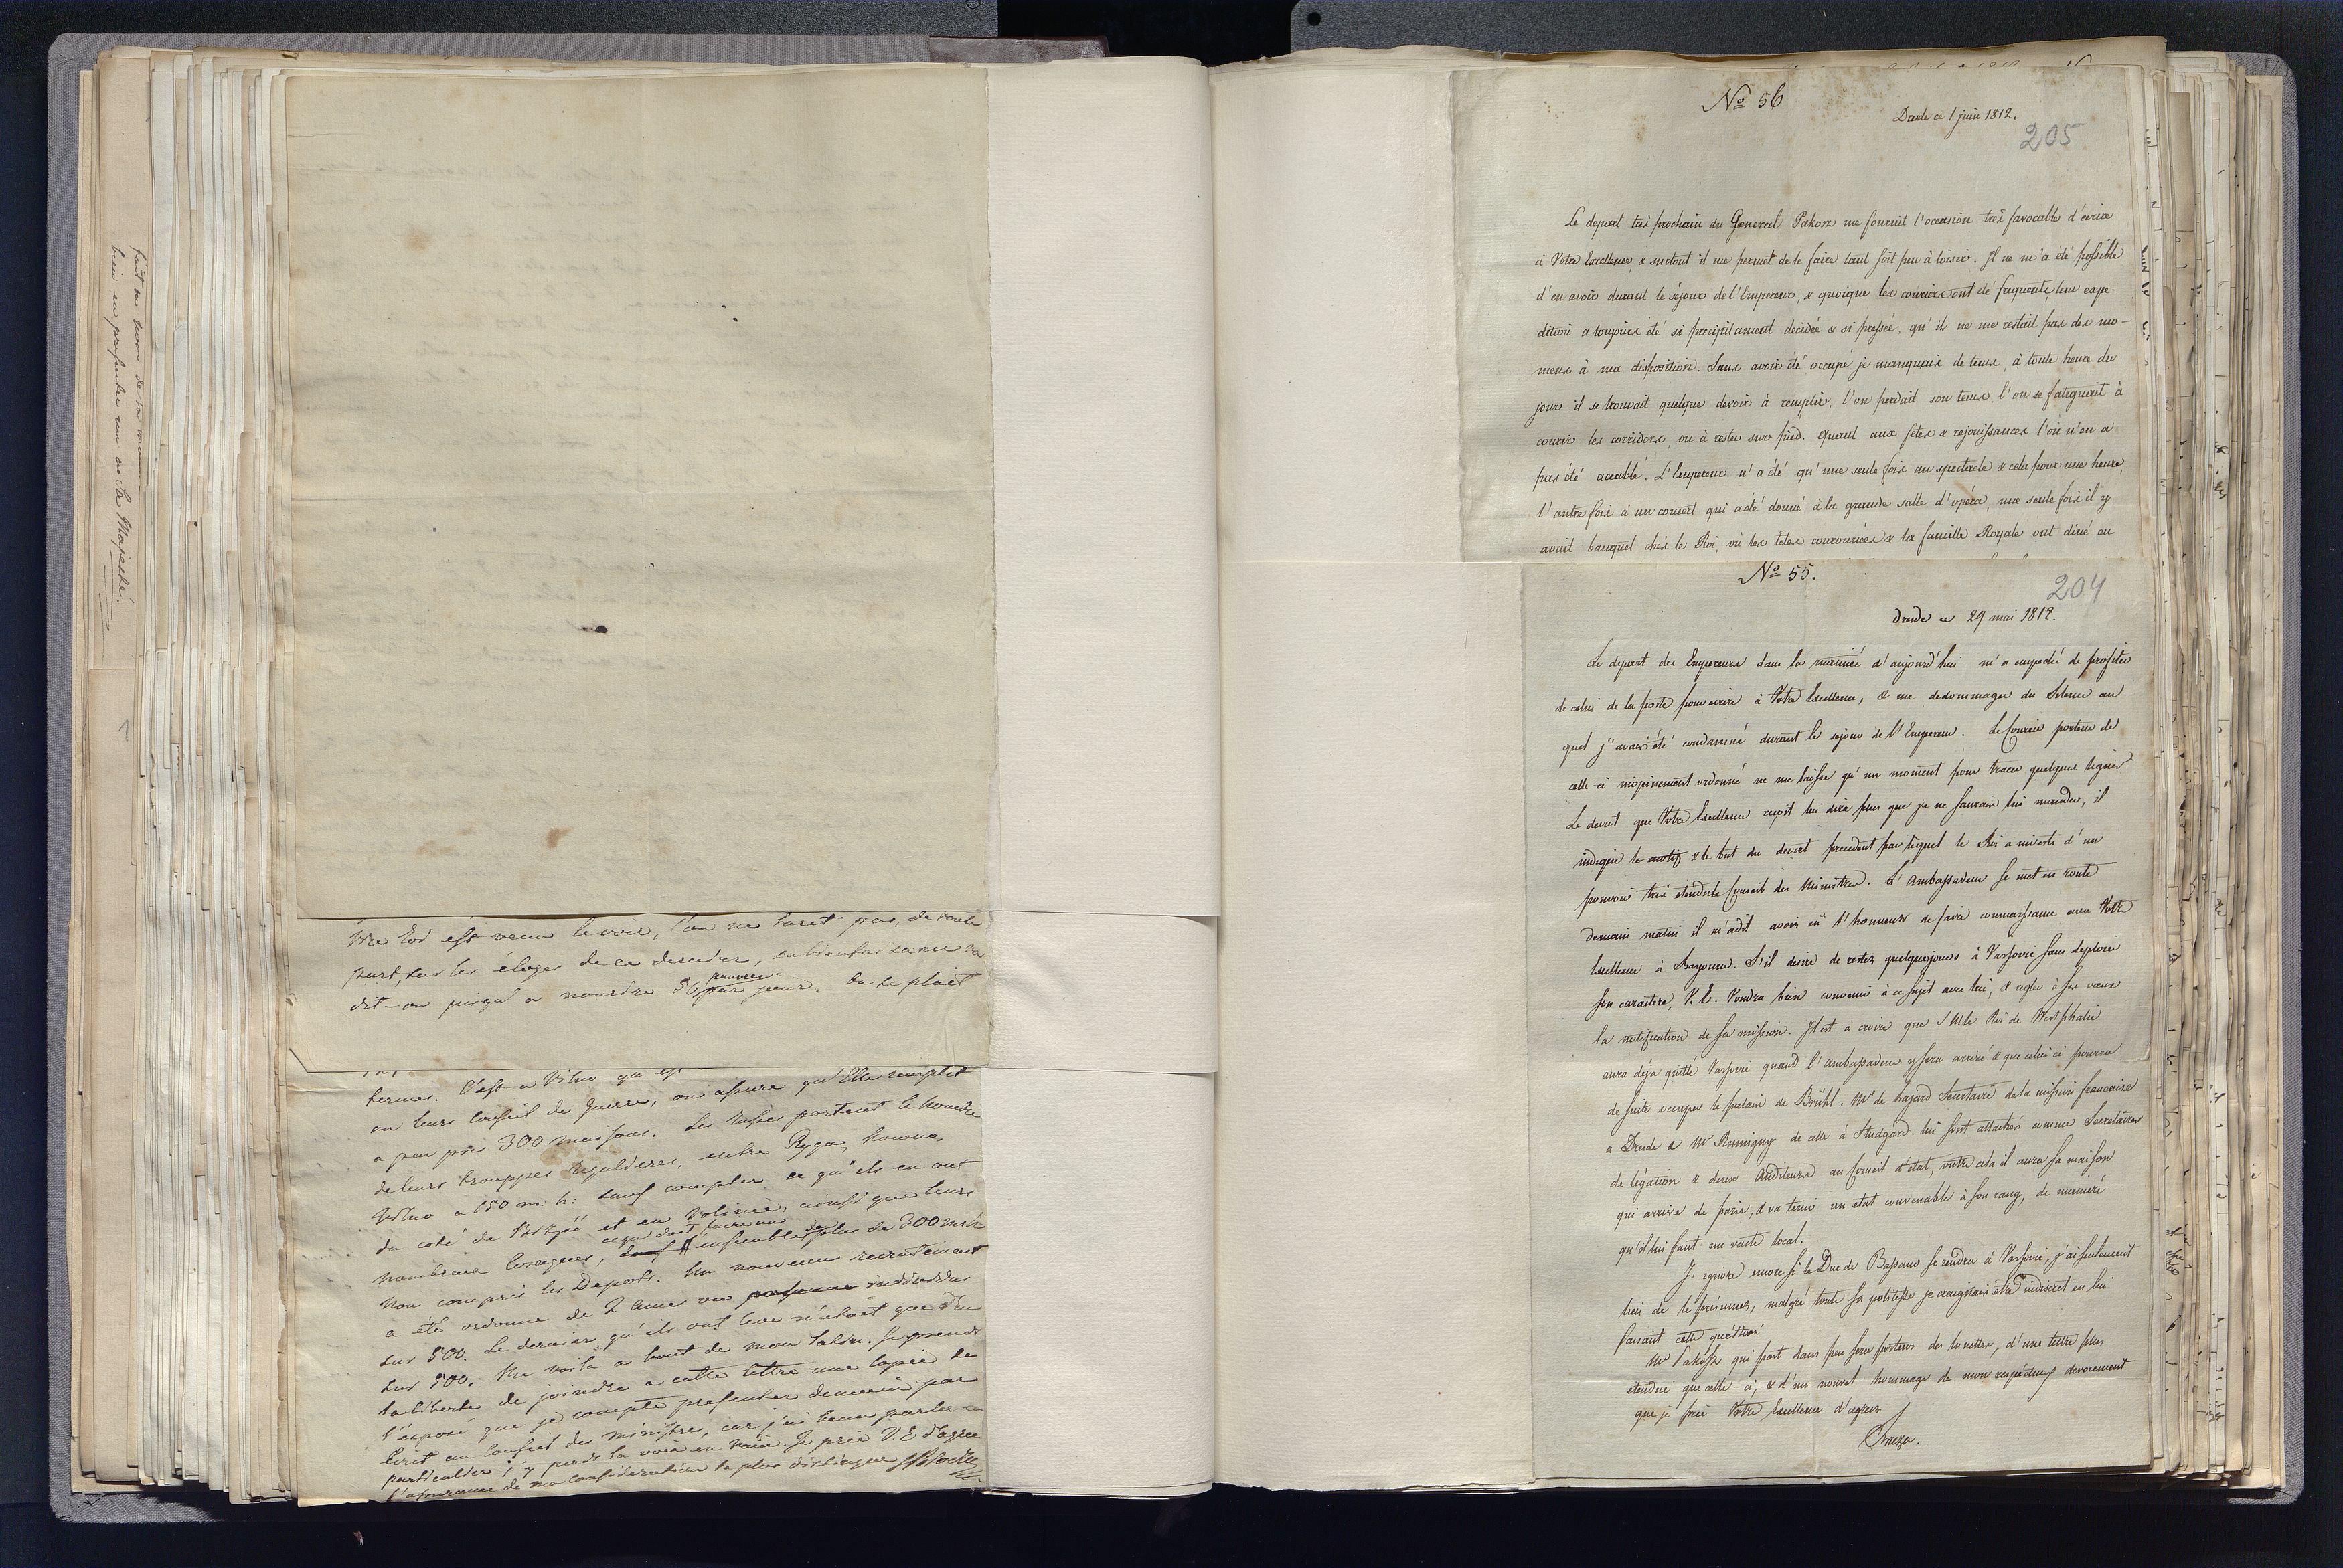 fait au nom de sa
bien en presenter un au Sa Majesté.
Votre Exc. est venu le voir, l'on ne tarit pas, de toute
part, sur les éloges de ce dernier, sa bienfaisance va
dit-on jusqu'a nourdre 56 pauvres par jour. On se plait
termes. C'est a Vilno qu'
au leurs conseil de guerre, on assure qu'Elle remplit
a peu près 300 maisons. Les Russes portent le nombre
de leurs trouppes regulieres, entre Ryga, Kowno,
Vilno a 150 m. h: sans compter ce qu'ils en ont
du coté de et en Volinie, ainsi que leurs
nombreux Cosaques, ce qui doit faire un ensemble de plus de 300 m. h
non compris les Depots. Un nouveau recrutement
a été ordonné de 2 ames ou individus
sur 500. Le dernier qu'ils ont levé n'étoit que d'un
sur 500. Me voila a bout de mon latin. Je prends
la liberté de joindre a cette lettre une copie de
l'exposé que je compte presenter demain par
écrit au Conseil des ministres, car j'ai beau parler en
particulier j'y perds la voix en vain. Je prie V. E. d'agréer
l'assurance de ma consideration la plus distinguée
No 56
Dresde ce 1 juin 1812.
205
Le depart très prochain du General Pakosz me fournit l'occasion très favorable d'écrire
à Votre Excellence, & surtout il me permet de le faire tant soit peu à loisir. Il ne m'a été possible
d'en avoir durant le séjour de l'Empereur, & quoique les couriers ont été frequents, leur expe-
dition a toujours été si precipitament decidée & si pressée, qu'il ne me restait pas des mo-
mens à ma disposition. Sans avoir été occupé je manquais de tems, à toute heure du
jour il se trouvait quelque devoir à remplir, l'on perdait son tems l'on se fatiguait à
courir les corridors, ou à rester sur pied. Quant aux fetes & rejouissances l'on n'en a
pas été accablé. L'Empereur n'a été qu'une seule fois au spectacle & cela pour une heure,
l'autre fois à un consert qui a été donné à la grande salle d'opéra, une seule fois il y
avait banquet chés le Roi, où les têtes couronnées & la famille Royale ont diné en
No 55.
204
Dresde ce 29 mai 1812.
Le depart des Empereurs dans la matinée d'aujourd'hui m'a empeché de profiter
de celui de la poste pour ecrire à Votre Excellence, & me dedommager du silence au
quel j'avais été condamné durant le sejour de l'Empereur. Le Courier porteur de
celle-ci inopinement ordonné ne me laisse qu'un moment pour tracer quelques lignes
Le decret que Votre Excellence reçoit lui dira plus que je ne saurais lui mander, il
indique le motif & le but du decret precedent par lequel le Roi a investi d'un
pouvoir très etendu le Conseil des Ministres. L'Ambassadeur se met en route
demain matin il m'a dit avoir eu l'honneur de faire connaissance avec Votre
Excellence à Bayonne. S'il desire de rester quelques jours à Varsovie sans deploier
son caractere, V. E. voudra bien convenir à ce sujet avec lui, & regler à ses vœux
la notification de sa mission. Il est à croire que S M le Roi de Westphalie
aura déja quitté Varsovie quand l'ambassadeur y sera arrivé & que celui ci pourra
de suite occuper le palais de Brühl. Mr de Lajard Secretaire de la mission française
a Dresde & Mr Rumigny de celle à Studgard lui sont attachés comme Secretaires
de légation & deux Auditeurs au Conseil d'état, outre cela il aura sa maison
qui arrive de Paris, & va tenir un etat convenable à son rang, de maniere
qu'il lui faut un vaste local.
J'ignore encore si le Duc de Bassano se rendra à Varsovie, j'ai seulement
lieu de le présumer, malgré toute sa politesse je craignais être indiscret en lui
faisant cette question
Mr Pakosz qui part dans peu sera porteur des lunettes, d'une lettre plus
etendue que celle-ci, & d'un nouvel hommage de mon respectueux devouement
que je prie Votre Excellence d'agréer
Breza.